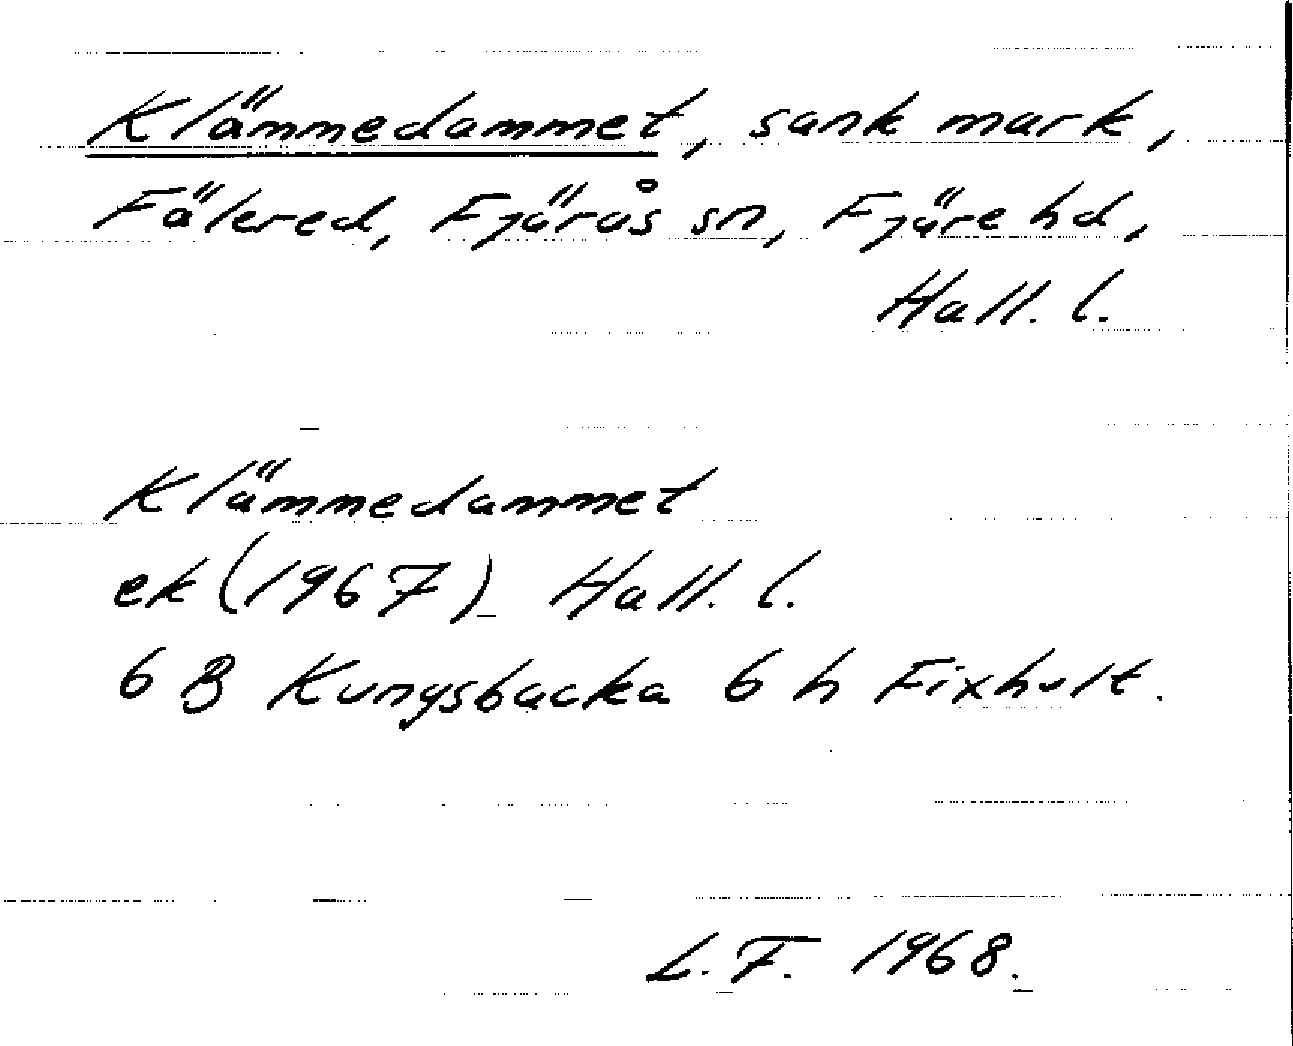 Klämmedammet, sank mark,
Fälered, Fjärås sn, Fjäre hd,
Hall. l.
Klämmedammet
ek (1967) Hall. l.
6 B Kungsbacka 6 h Fixhult.
L.F. 1968.